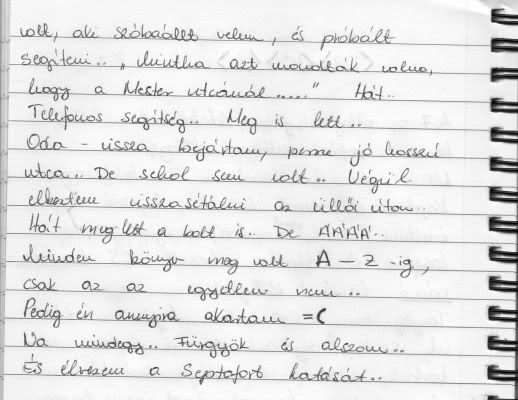 volt, aki szóbaállt velem, és próbált
segíteni.. „Mintha azt mondták volna,
hogy a Mester utcánál....." Hát..
Telefonos segítség.. Meg is lett..
Oda - vissza bejártam, persze jó hosszú
utca.. De sehol sem volt.. Végül
elkeztem visszasétálni az üllői úton.
Hát meg lett a bolt is.. De ÁÁÁÁ..
Minden könyv meg volt A - Z -ig,
csak az az egyetlen nem..
Pedig én annyira akartam =(
Na mindegy.. Fürgyök és alszom..
És élvezem a Septofort hatását..